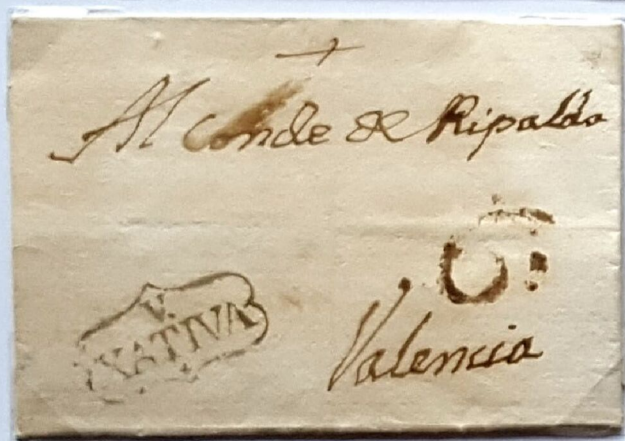 +
Al Conde de Ripalda
5
V.
XATIVA
Valencia